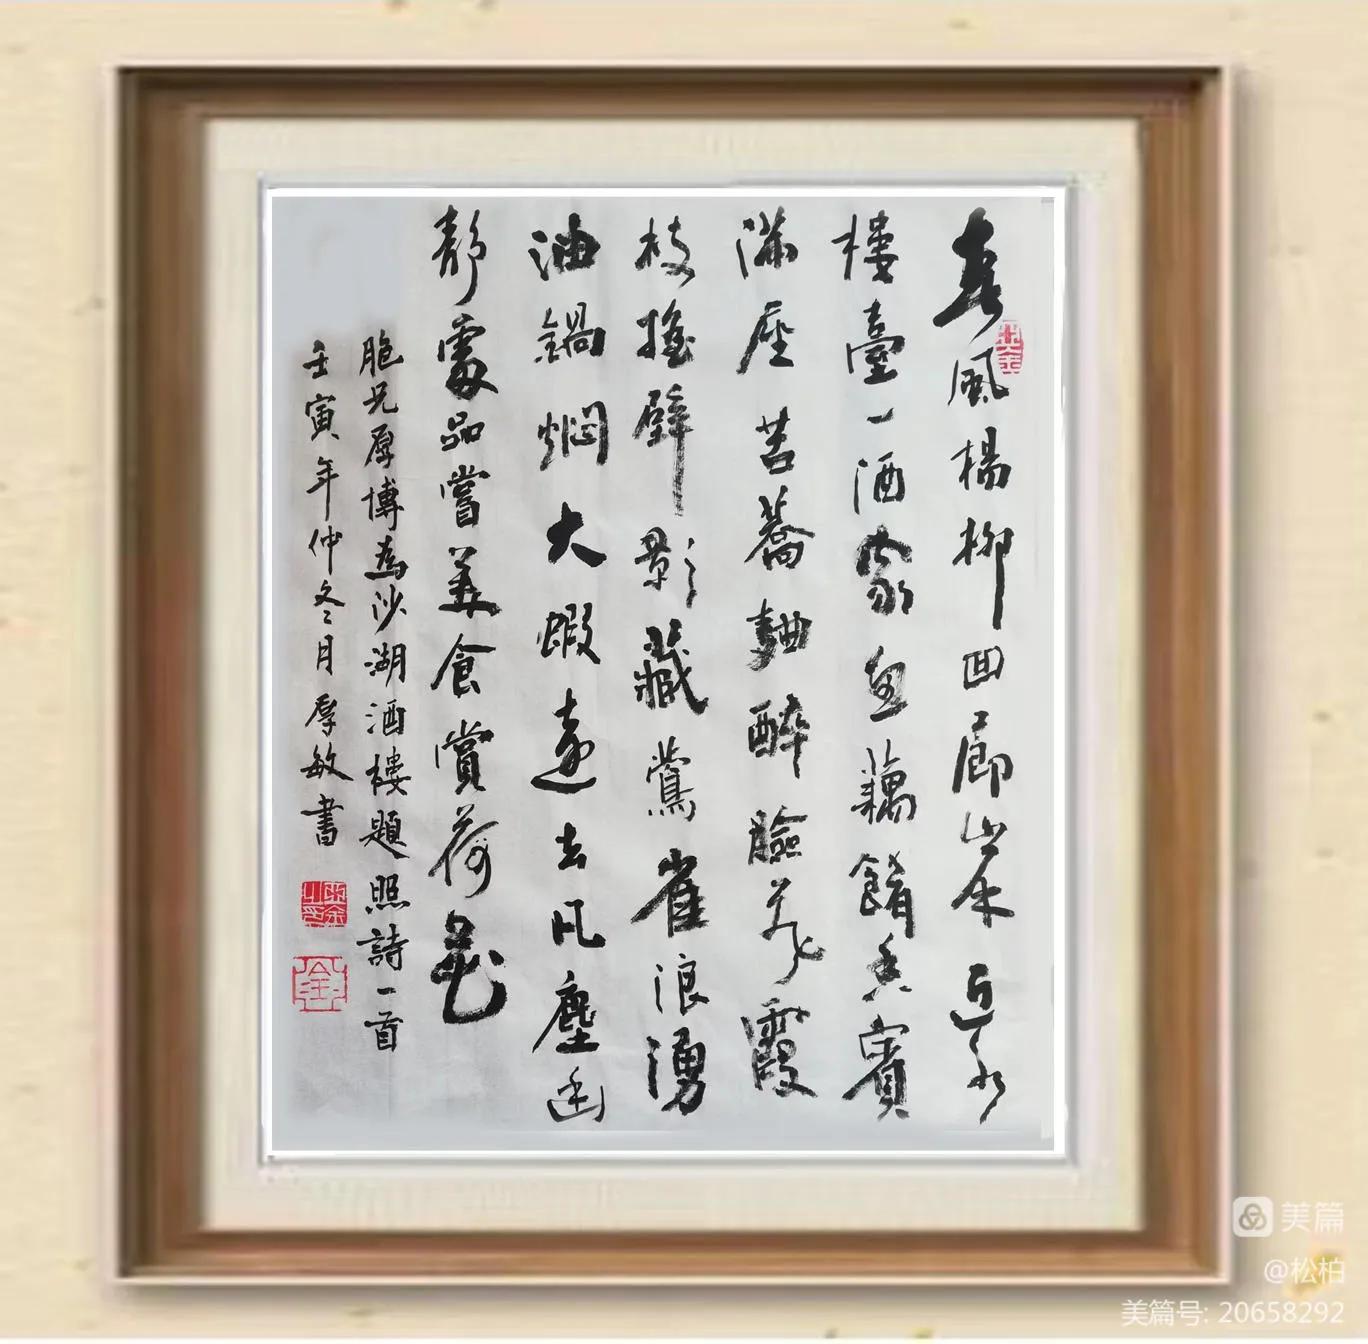 春風楊柳回廊近水
樓臺一酒家魚藕餚香賓
滿座苦蕎麯醉臉飛霞
枝搖壁影藏鶯雀浪湧
油鍋燜大蝦遠去凡塵幽
靜處品嘗美食賞荷花
胞兄厚博為沙湖酒樓題照詩一首
壬寅年仲冬月厚敏書
美篇
@松柏
美篇号: 20658292